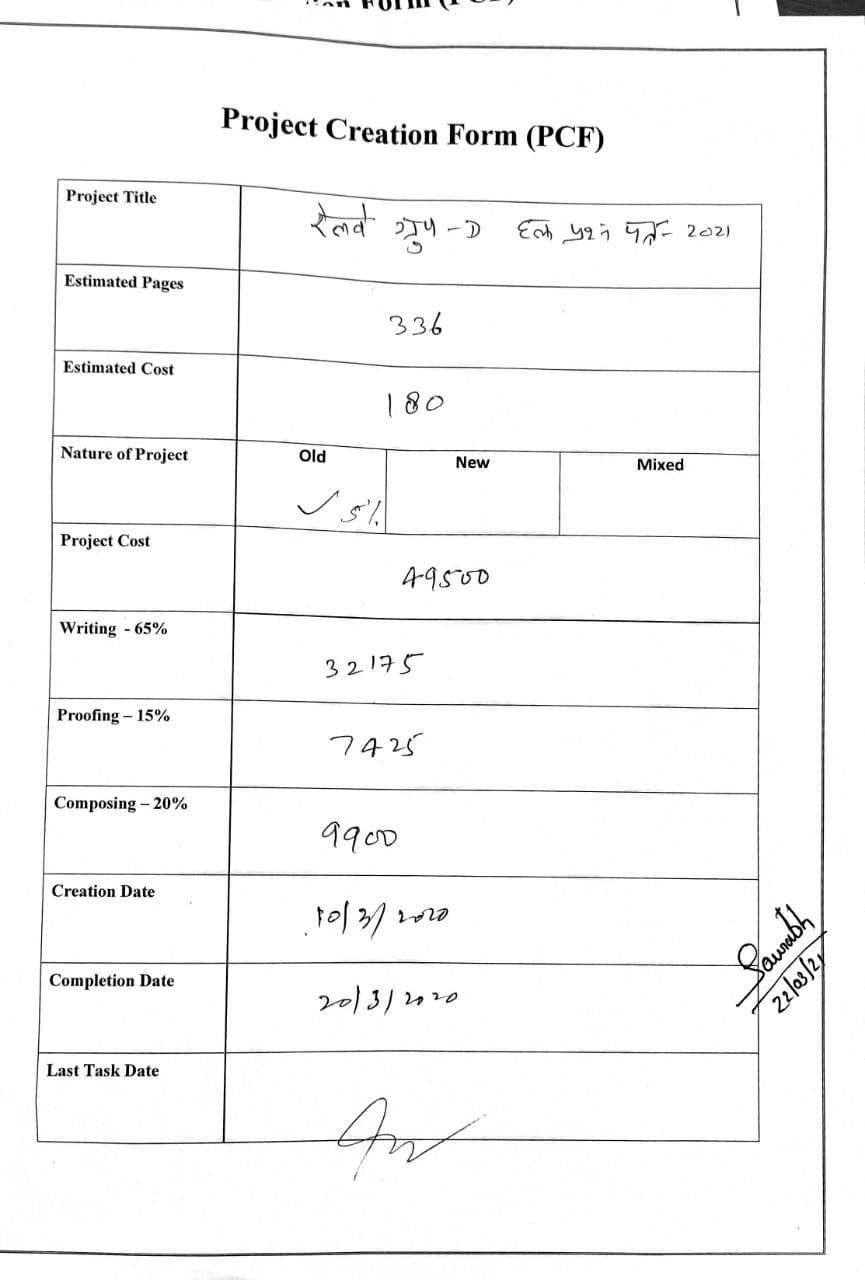 Project Creation Form (PCF)
Project Title
रेलवे ग्रुप -D हल प्रश्न पत्र- 2021
Estimated Pages
336
Estimated Cost
180
Nature of Project
Old
New
Mixed
✓ 5%
Project Cost
49500
Writing - 65%
32175
Proofing – 15%
7425
Composing – 20%
9900
Creation Date
10/3/2020
Completion Date
20/3/2020
Saurabh
22/03/21
Last Task Date